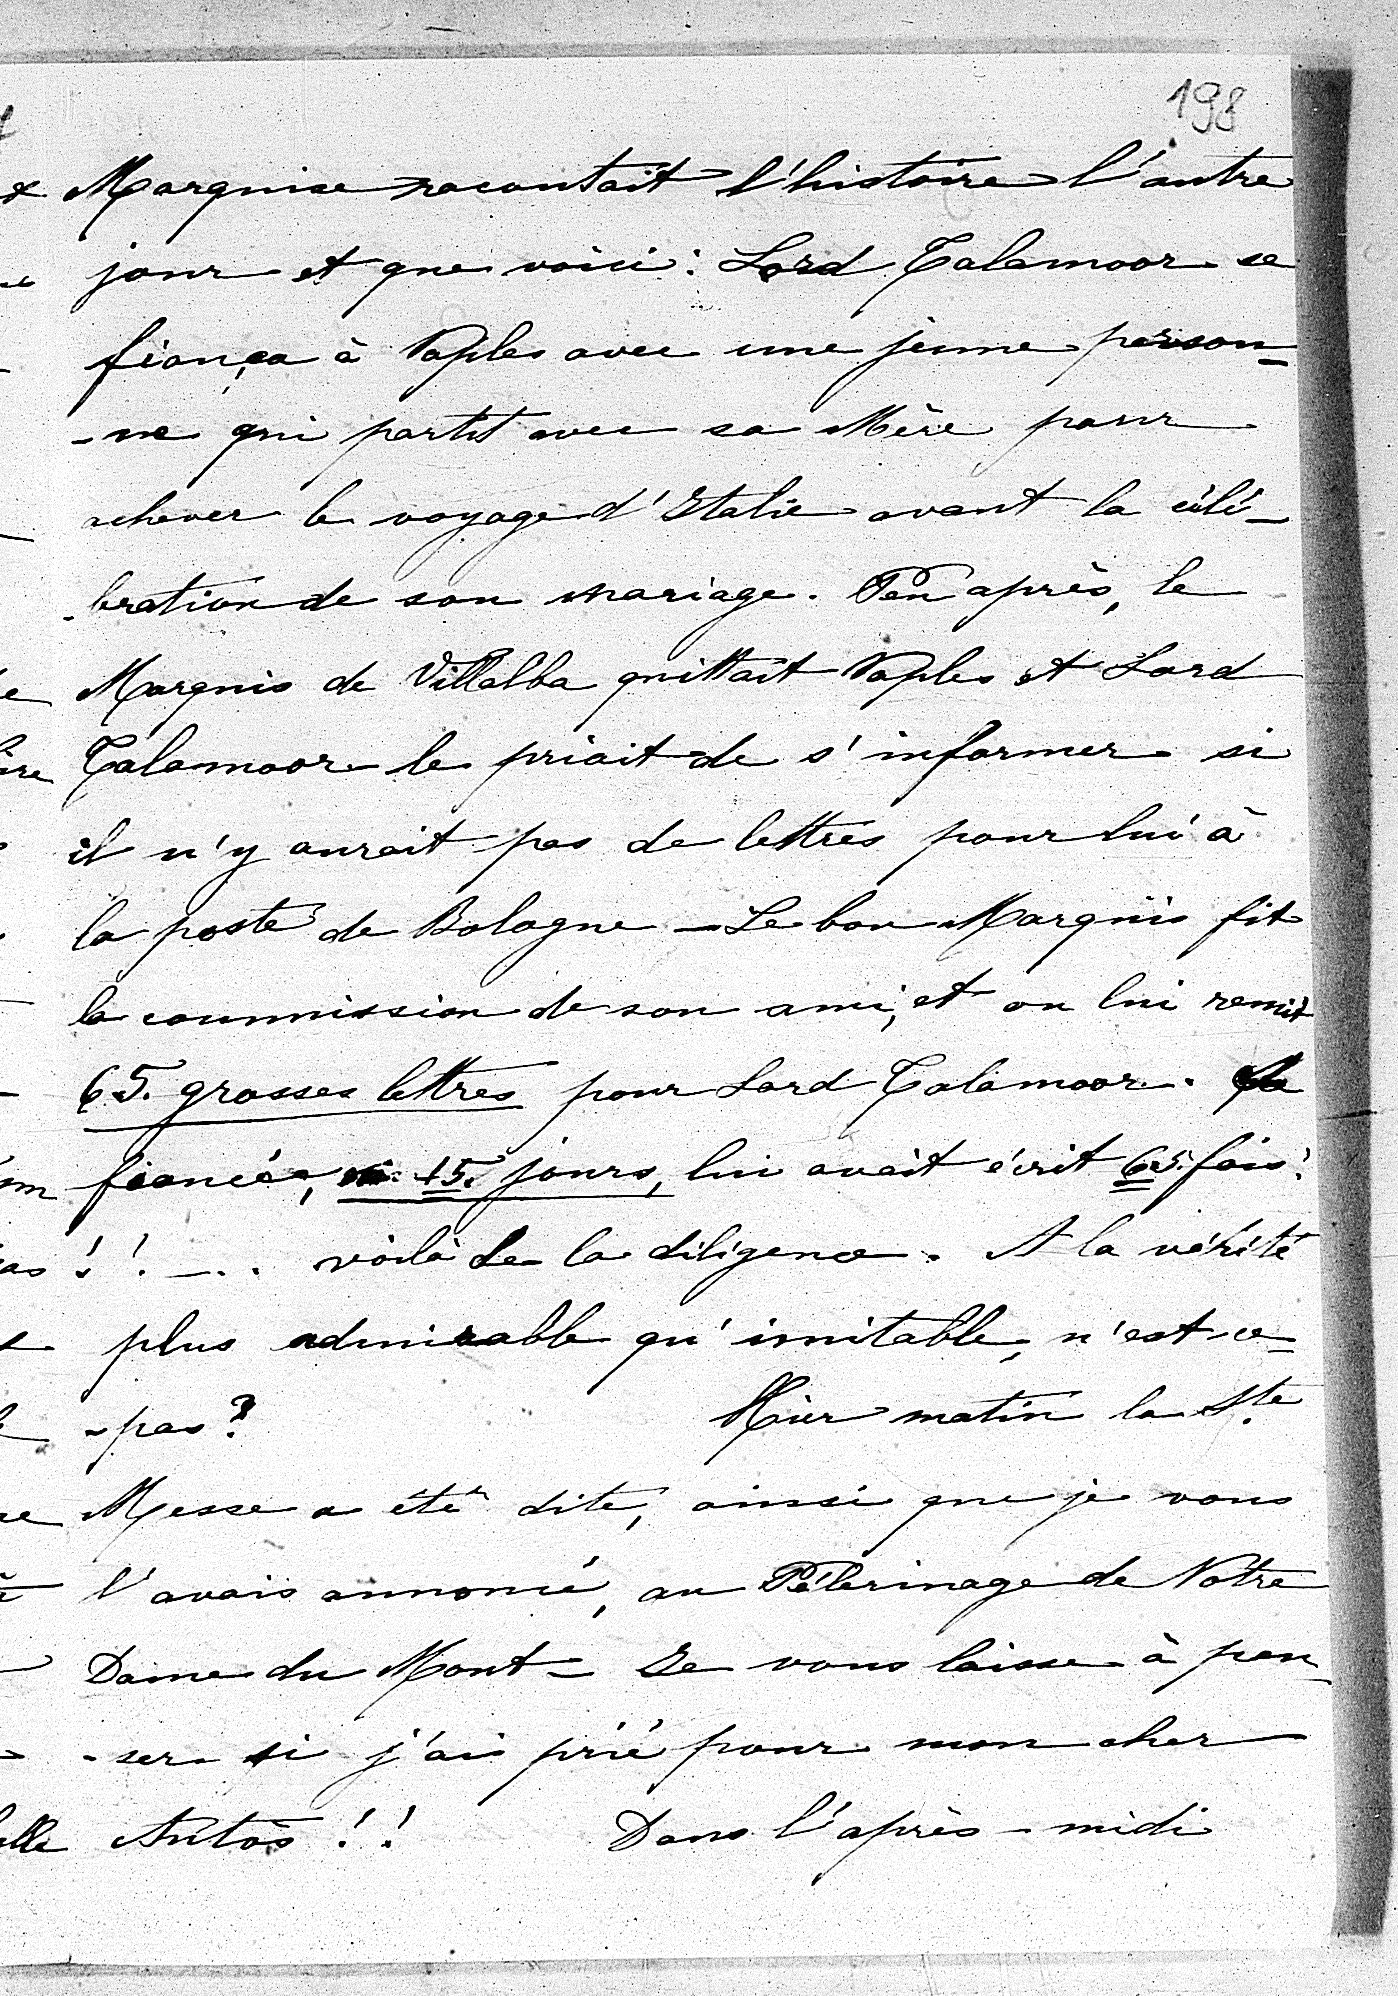 198
Marquise racontait l'histoire l'autre
jour et que voici : Lord Talamoor se
fiança à Naples avec une jeune person-
-ne qui partit avec sa Mère pour
achever le voyage d'Italie avant la célé-
-bration de son mariage. Peu après, le
Marquis de Villalba quittait Naples et Lord
Talamoor le priait de s'informer si
il n'y aurait pas de lettres pour lui à
la poste de Bologne – Le bon Marquis fit
la commission de son ami, et on lui remit
65. grosses lettres pour Lord Talamoor. La
fiancée, en 15. jours, lui avait écrit 65. fois !
! ! — . . voilà de la diligence. A la vérité
plus admirable qu'imitable, n'est-ce-
-pas ? Hier matin la Ste
Messe a été dite, ainsi que je vous
l'avais annoncé, au Pélerinage de Notre
Dame du Mont – Je vous laisse à pen
-ser si j'ai prié pour mon cher
Antos ! ! Dans l'après-midi